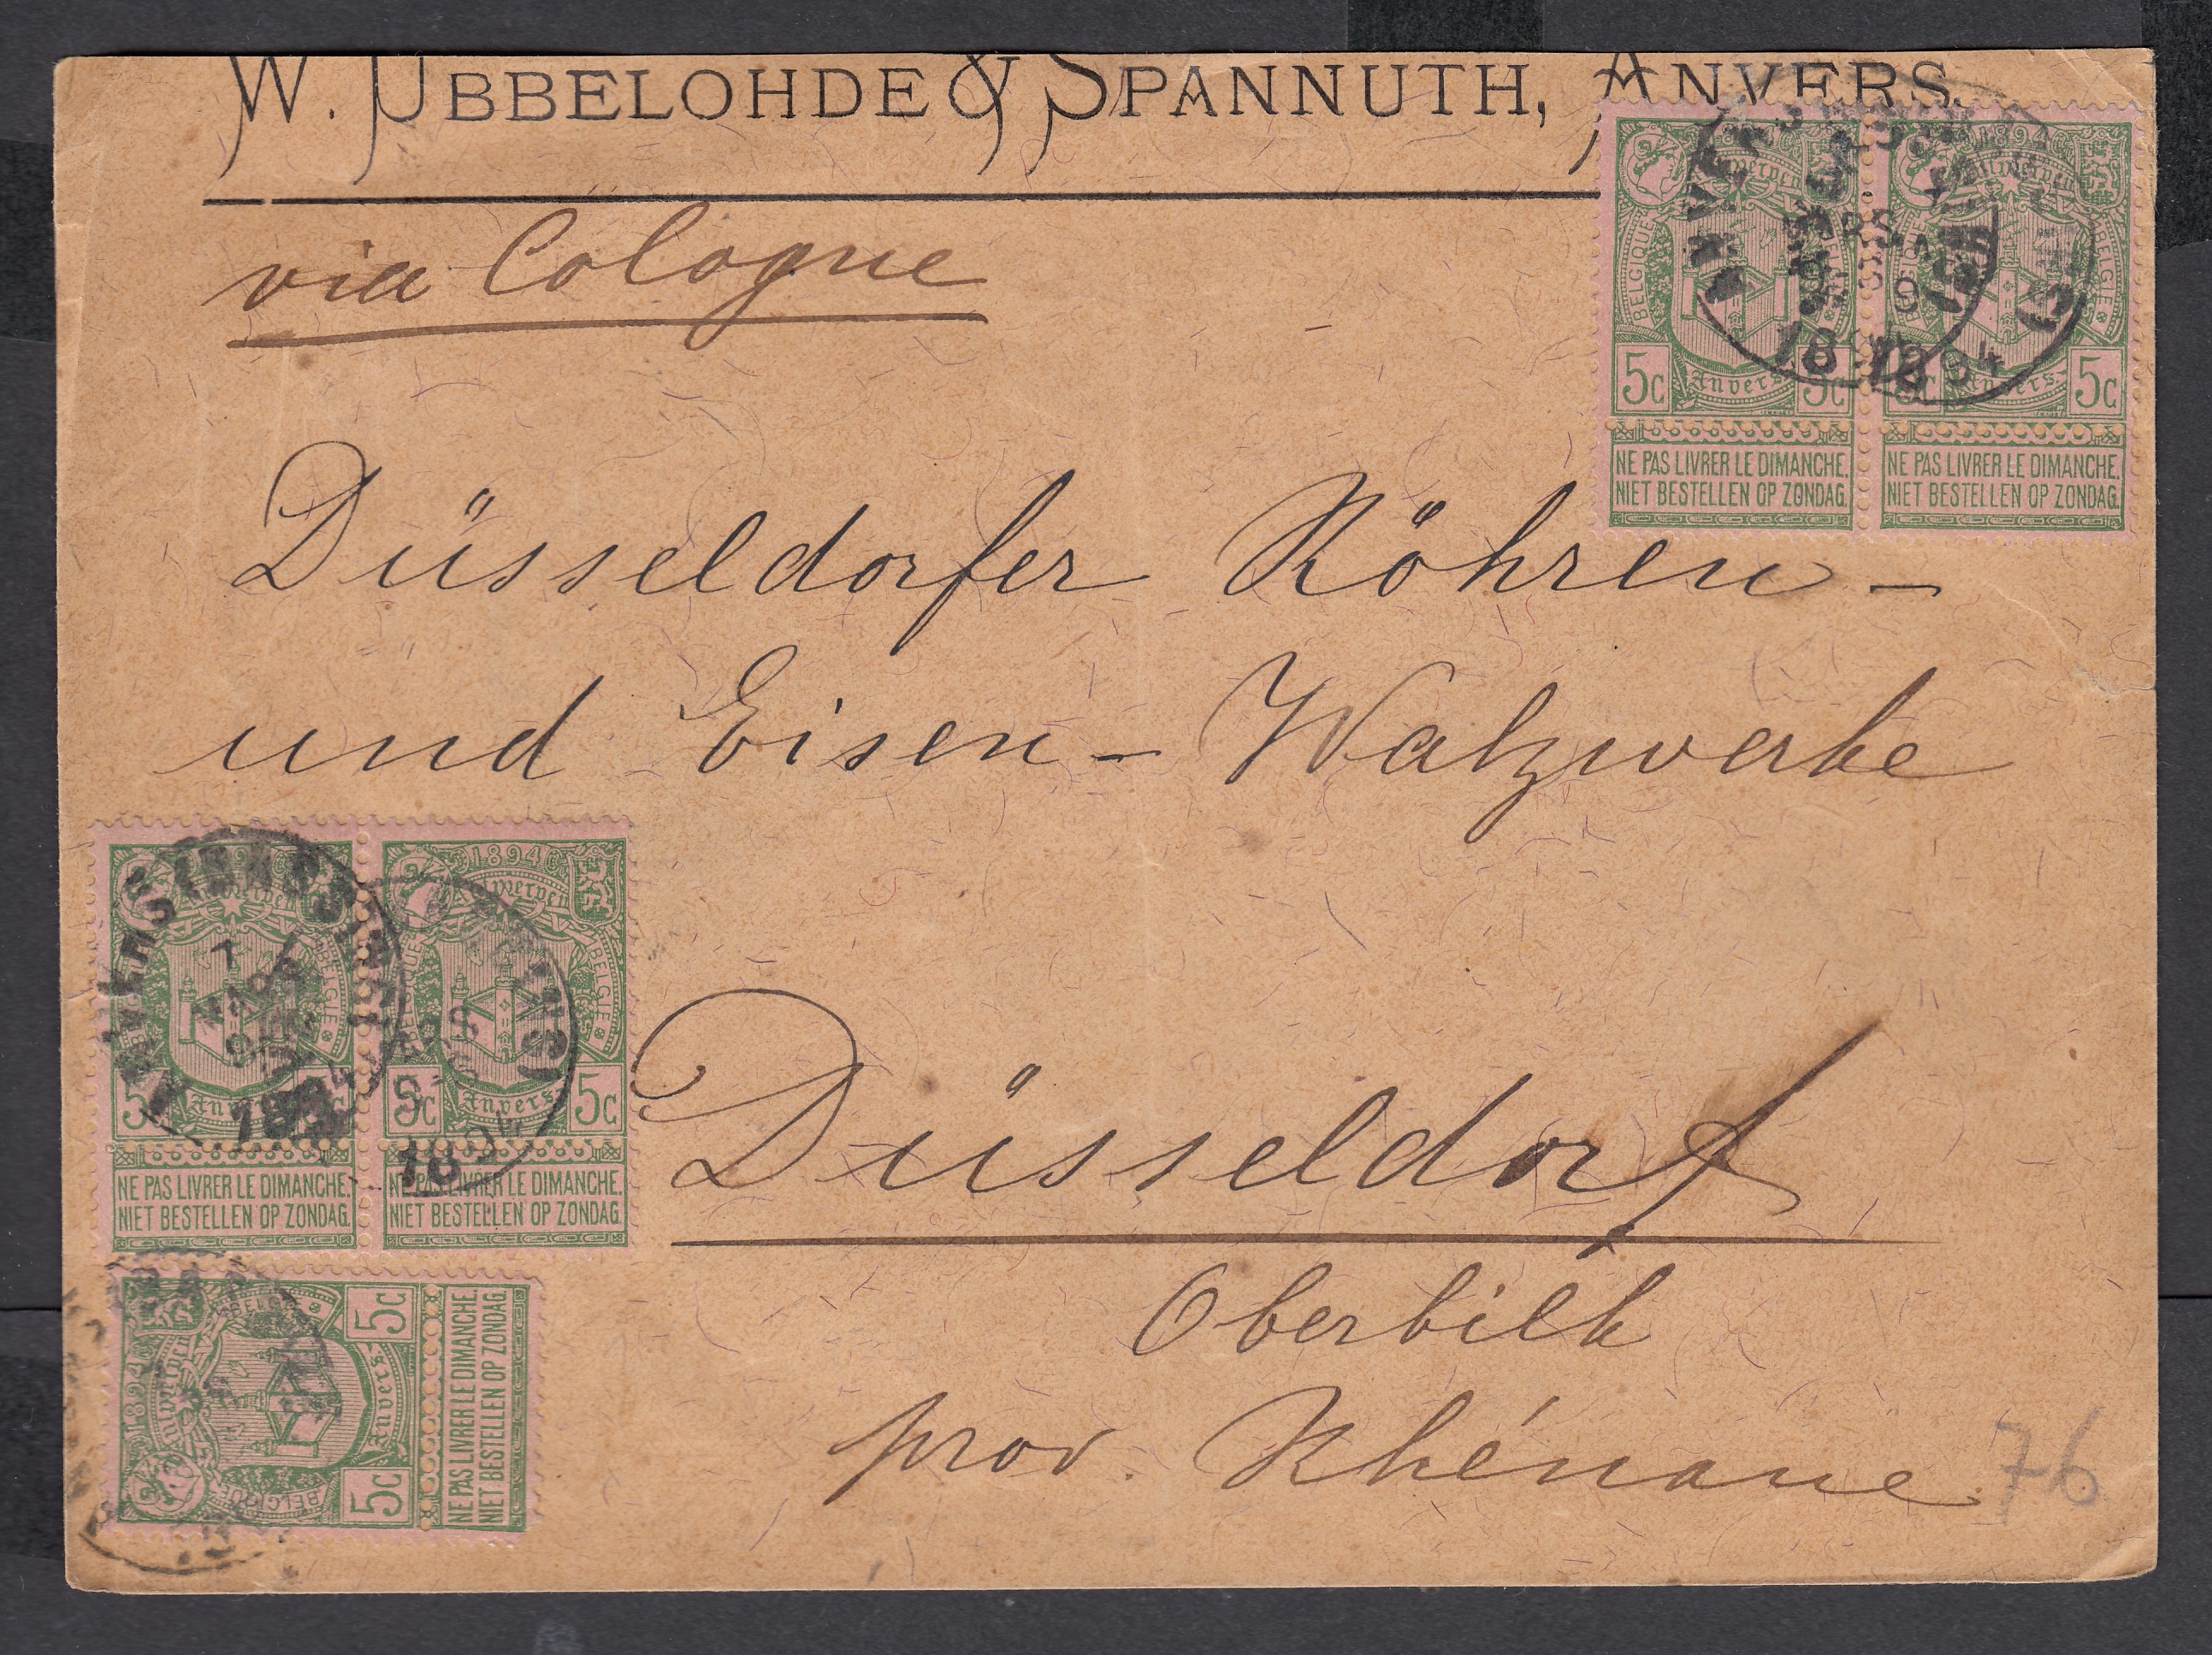 W. UBBELOHDE & SPANNUTH, ANVERS.
via Cologne
1894
Antwerpen
BELGIQUE BELGIE
5c Anvers 5c
5c Anvers 5c
NE PAS LIVRER LE DIMANCHE.
NIET BESTELLEN OP ZONDAG.
NE PAS LIVRER LE DIMANCHE.
NIET BESTELLEN OP ZONDAG.
1894
Düsseldorfer Röhren-
und Eisen-Walzwerke
1894
Antwerpen
BELGIQUE BELGIE
5c Anvers 5c
NE PAS LIVRER LE DIMANCHE.
NIET BESTELLEN OP ZONDAG.
NE PAS LIVRER LE DIMANCHE.
NIET BESTELLEN OP ZONDAG.
7 MARS
1894
1894
Düsseldorf
Oberbilk
prov. Rhénane
76
1894
Antwerpen
BELGIQUE BELGIE
5c Anvers 5c
NE PAS LIVRER LE DIMANCHE.
NIET BESTELLEN OP ZONDAG.